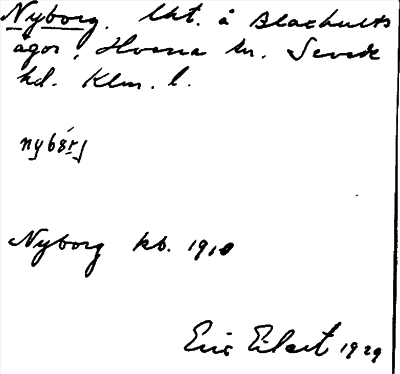 Nyborg. lht. å Blackults
ägor, Hvena sn. Sevede
hd. Klm. l.
nybérj
Nyborg kb. 1910
Eric Eilert 1929